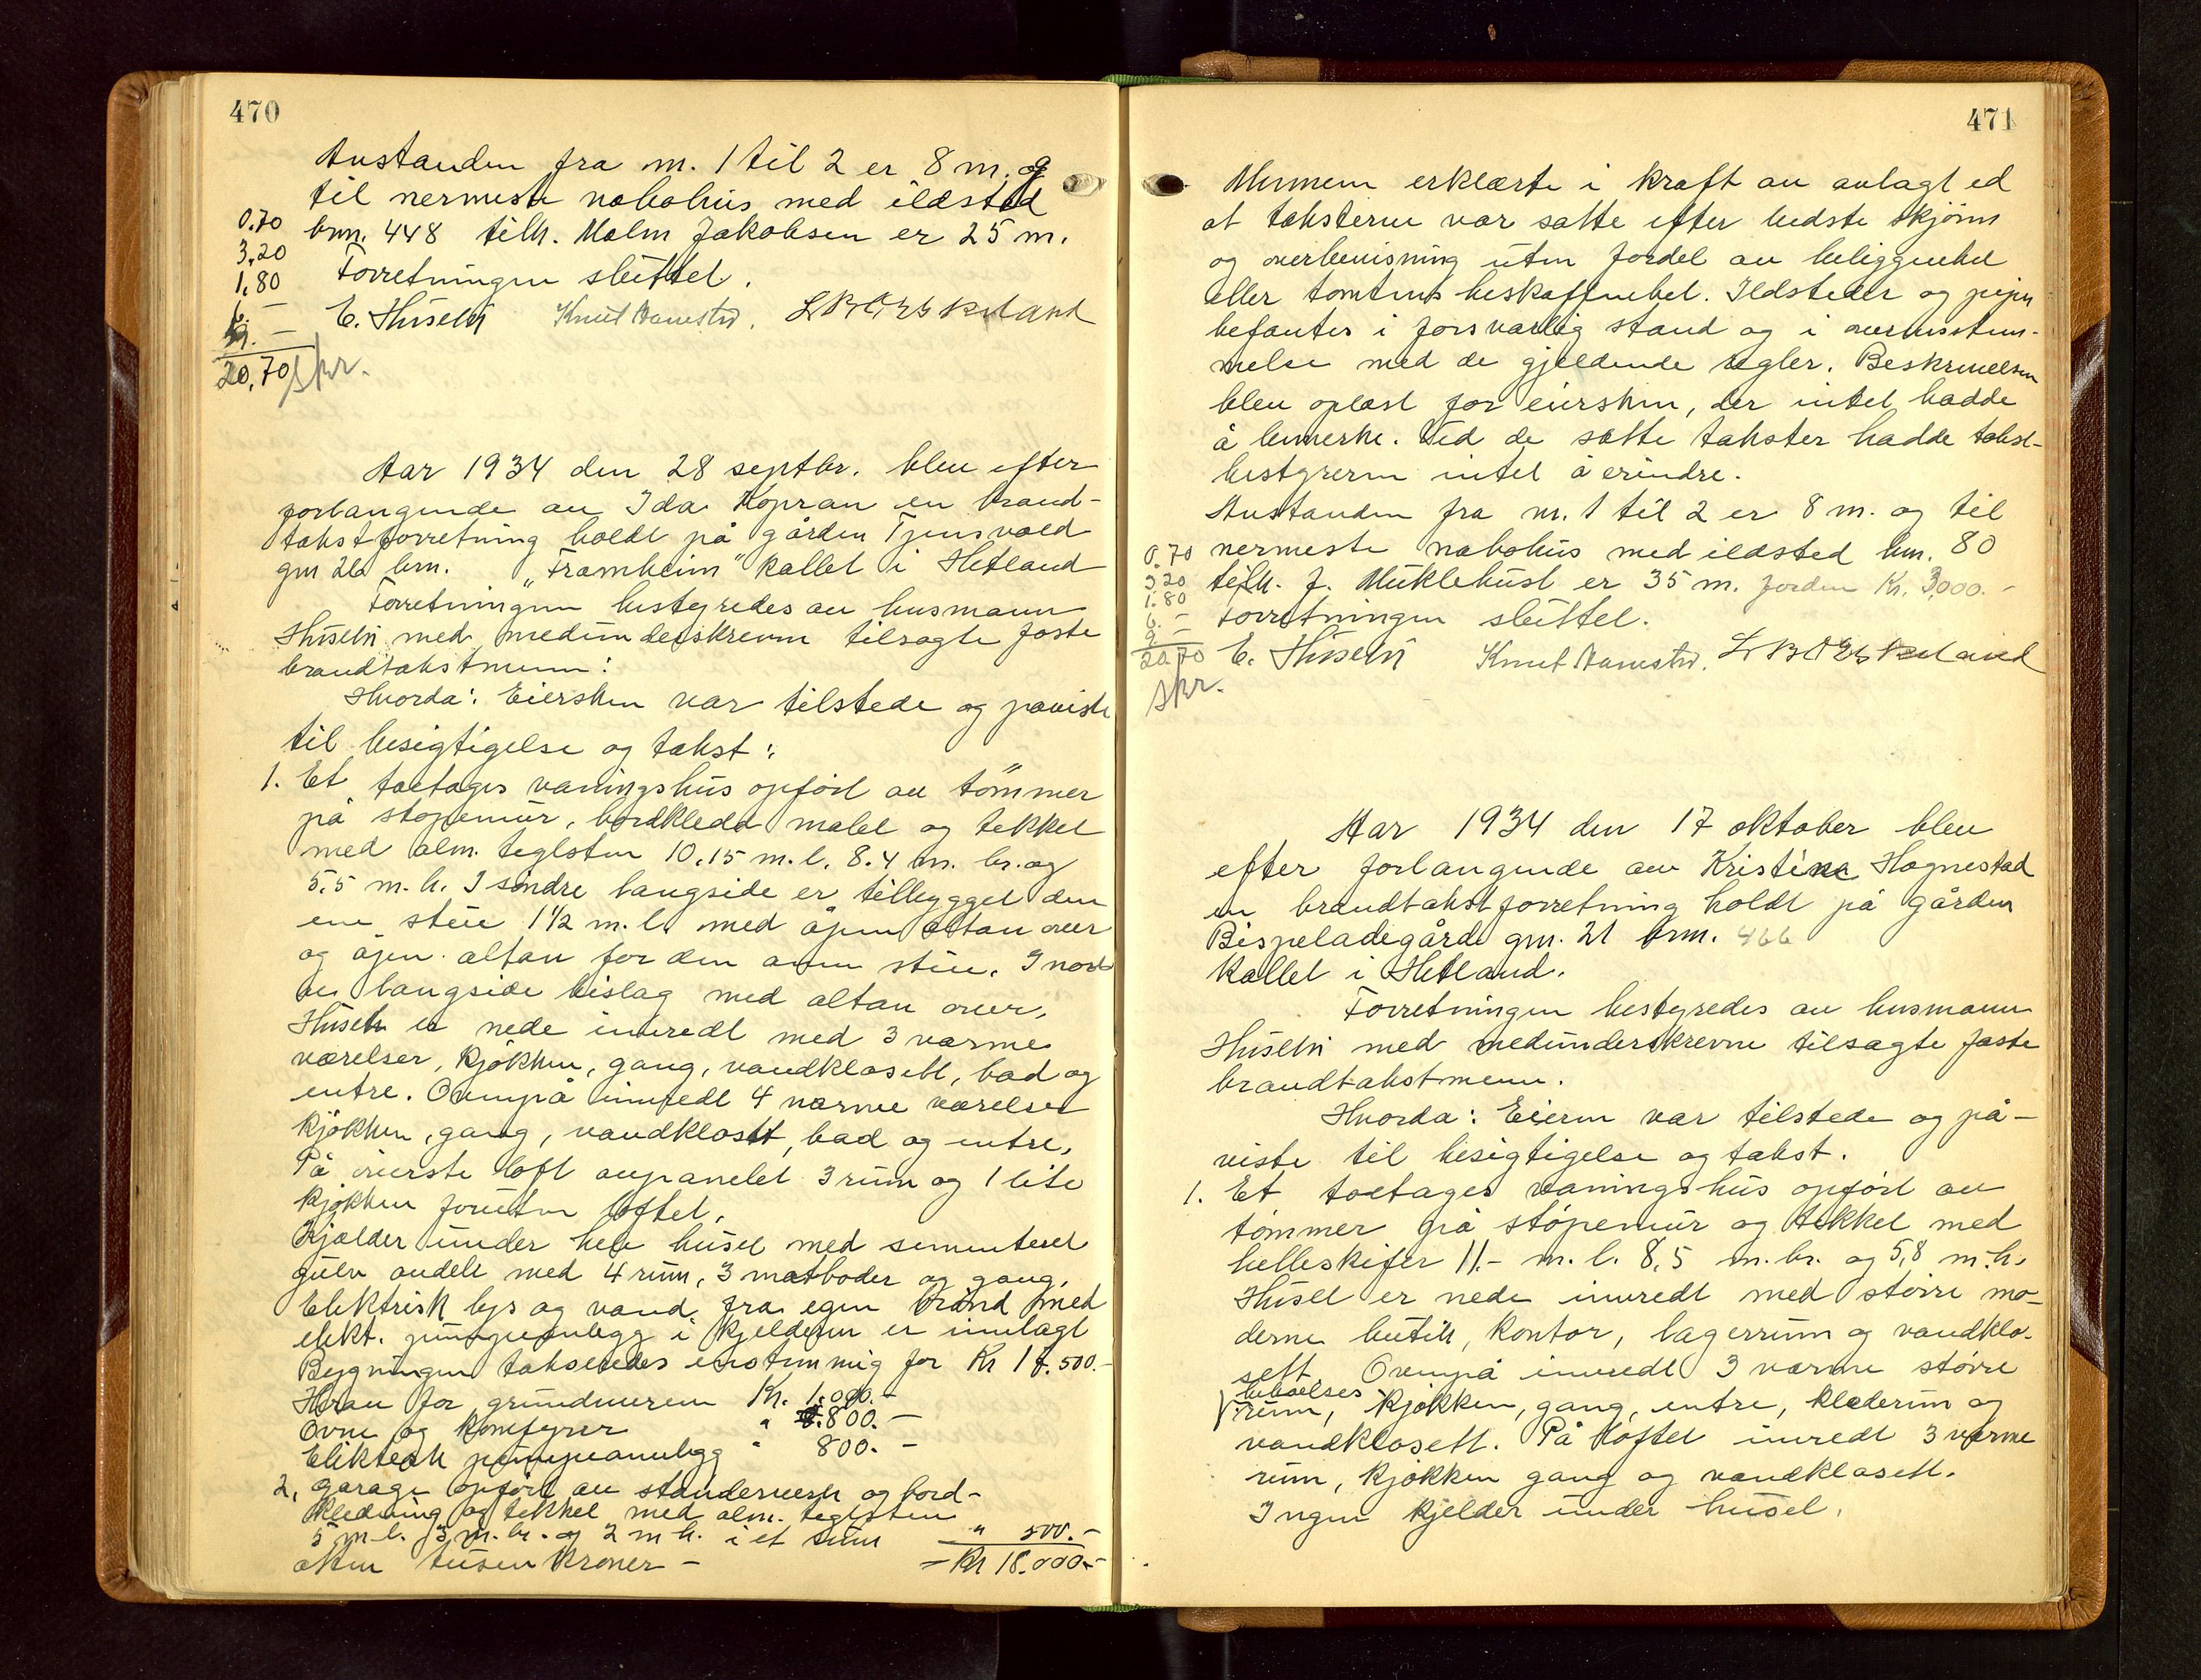 470
Avstanden fra nr. 1 til 2 er 8 m. og
til nermeste nabohus med ildsted
0.70 brnr. 448 tilh. Malm Jakobsen er 25 m.
3.20
1.80 Forretningen sluttet.
6.- E. Husebø Knut L B Orre
9.-
20,70 skr.
Aar 1934 den 28 septbr. blev efter
forlangende av Ida Kopran en brand-
takstforretning holdt på gården Tjensvold
gnr 26 brn. "Framheim" kallet i Hetland
Forretningen bestyredes av husmann
Husebø med medunderskrevne tilsagte faste
brandtakstmenn:
Hvorda: Eiersken var tilstede og paviste
til besigtigelse og takst:
1. Et toetages vaningshus opført av tømmer
på støpemur, bordkledd malet og tekket
med alm. teglsten 10.15 m.l. 8.4 m. br. og
5.5 m.h. I søndre langside er tilbygget den
ene stue 1 1/2 m.l. med åpen altan over
og åpen altan for den annen stue. I nord
re langside bislag med altan over.
Huset er nede innredt med 3 varme
værelser, kjøkken, gang, vandklosett, bad og
entre. Ovenpå innredt 4 varme værelser
kjøkken, gang, vandklosett, bad og entre,
På øverste loft avpanelet 3 rum og 1 lite
kjøkken foruten loftet.
Kjælder under hele huset med sementeret
gulv avdelt med 4 rum, 3 matboder og gang.
Elektrisk lys og vand fra egen brønd med
elekt. pumpeanlegg i kjelderen er innlagt
Bygningen takseredes enstemmig for Kr 17.500.-
Herav for grundmuren Kr. 1.000.-
Ovne og komfyrer " 800.-
Elektrisk pumpeanlegg " 800.-
2. Garage opført av stenderverk og bord-
kledning og tekket med alm. teglsten
5 m.l. 3 m. br. og 2 m h. i et rum " 500.-
atten tusen kroner - = Kr 18.000.-
471
Mennene erklærte i kraft av avlagt ed
at taksterne var satte efter bedste skjønn
og overbevisning uten fordel av beliggenhet
eller tomtens beskaffenhet. Ildsteder og piper
befantes i forsvarlig stand og i overensstem-
melse med de gjeldende regler. Beskrivelsen
blev oplæst for eiersken, der intet hadde
å bemerke. Ved de satte takster hadde takst-
bestyreren intet å erindre.
Avstanden fra nr. 1 til 2 er 8 m. og til
0.70 nermeste nabohus med ildsted bnr. 80
3.20 tilh. J. Muklehust er 35 m. Jorden Kr. 3,000.-
1.80
6.- Forretningen sluttet.
9.-
20,70 E. Husebø Knut L B Orre
skr.
Aar 1934 den 17 oktober blev
efter forlangende av Kristine Hognestad
en brandtakstforretning holdt på gården
Bispeladegård gnr. 21 brnr. 466
kallet i Hetland.
Forretningen bestyredes av husmann
Husebø med medunderskrevne tilsagte faste
brandtakstmenn.
Hvorda: Eieren var tilstede og på-
viste til besigtigelse og takst.
1. Et toetages vaningshus opført av
tømmer på støpemur og tekket med
helleskifer 11.- m.l. 8,5 m.br. og 5,8 m.h.
Huset er nede innredt med større mo-
derne butik, kontor, lagerrum og vandklo-
sett. Ovenpå innredt 3 varme større
beboelses
rum, kjøkken, gang, entre, klæderum og
vandklosett. På loftet innredt 3 varme
rum, kjøkken gang og vandklosett.
Ingen kjelder under huset.